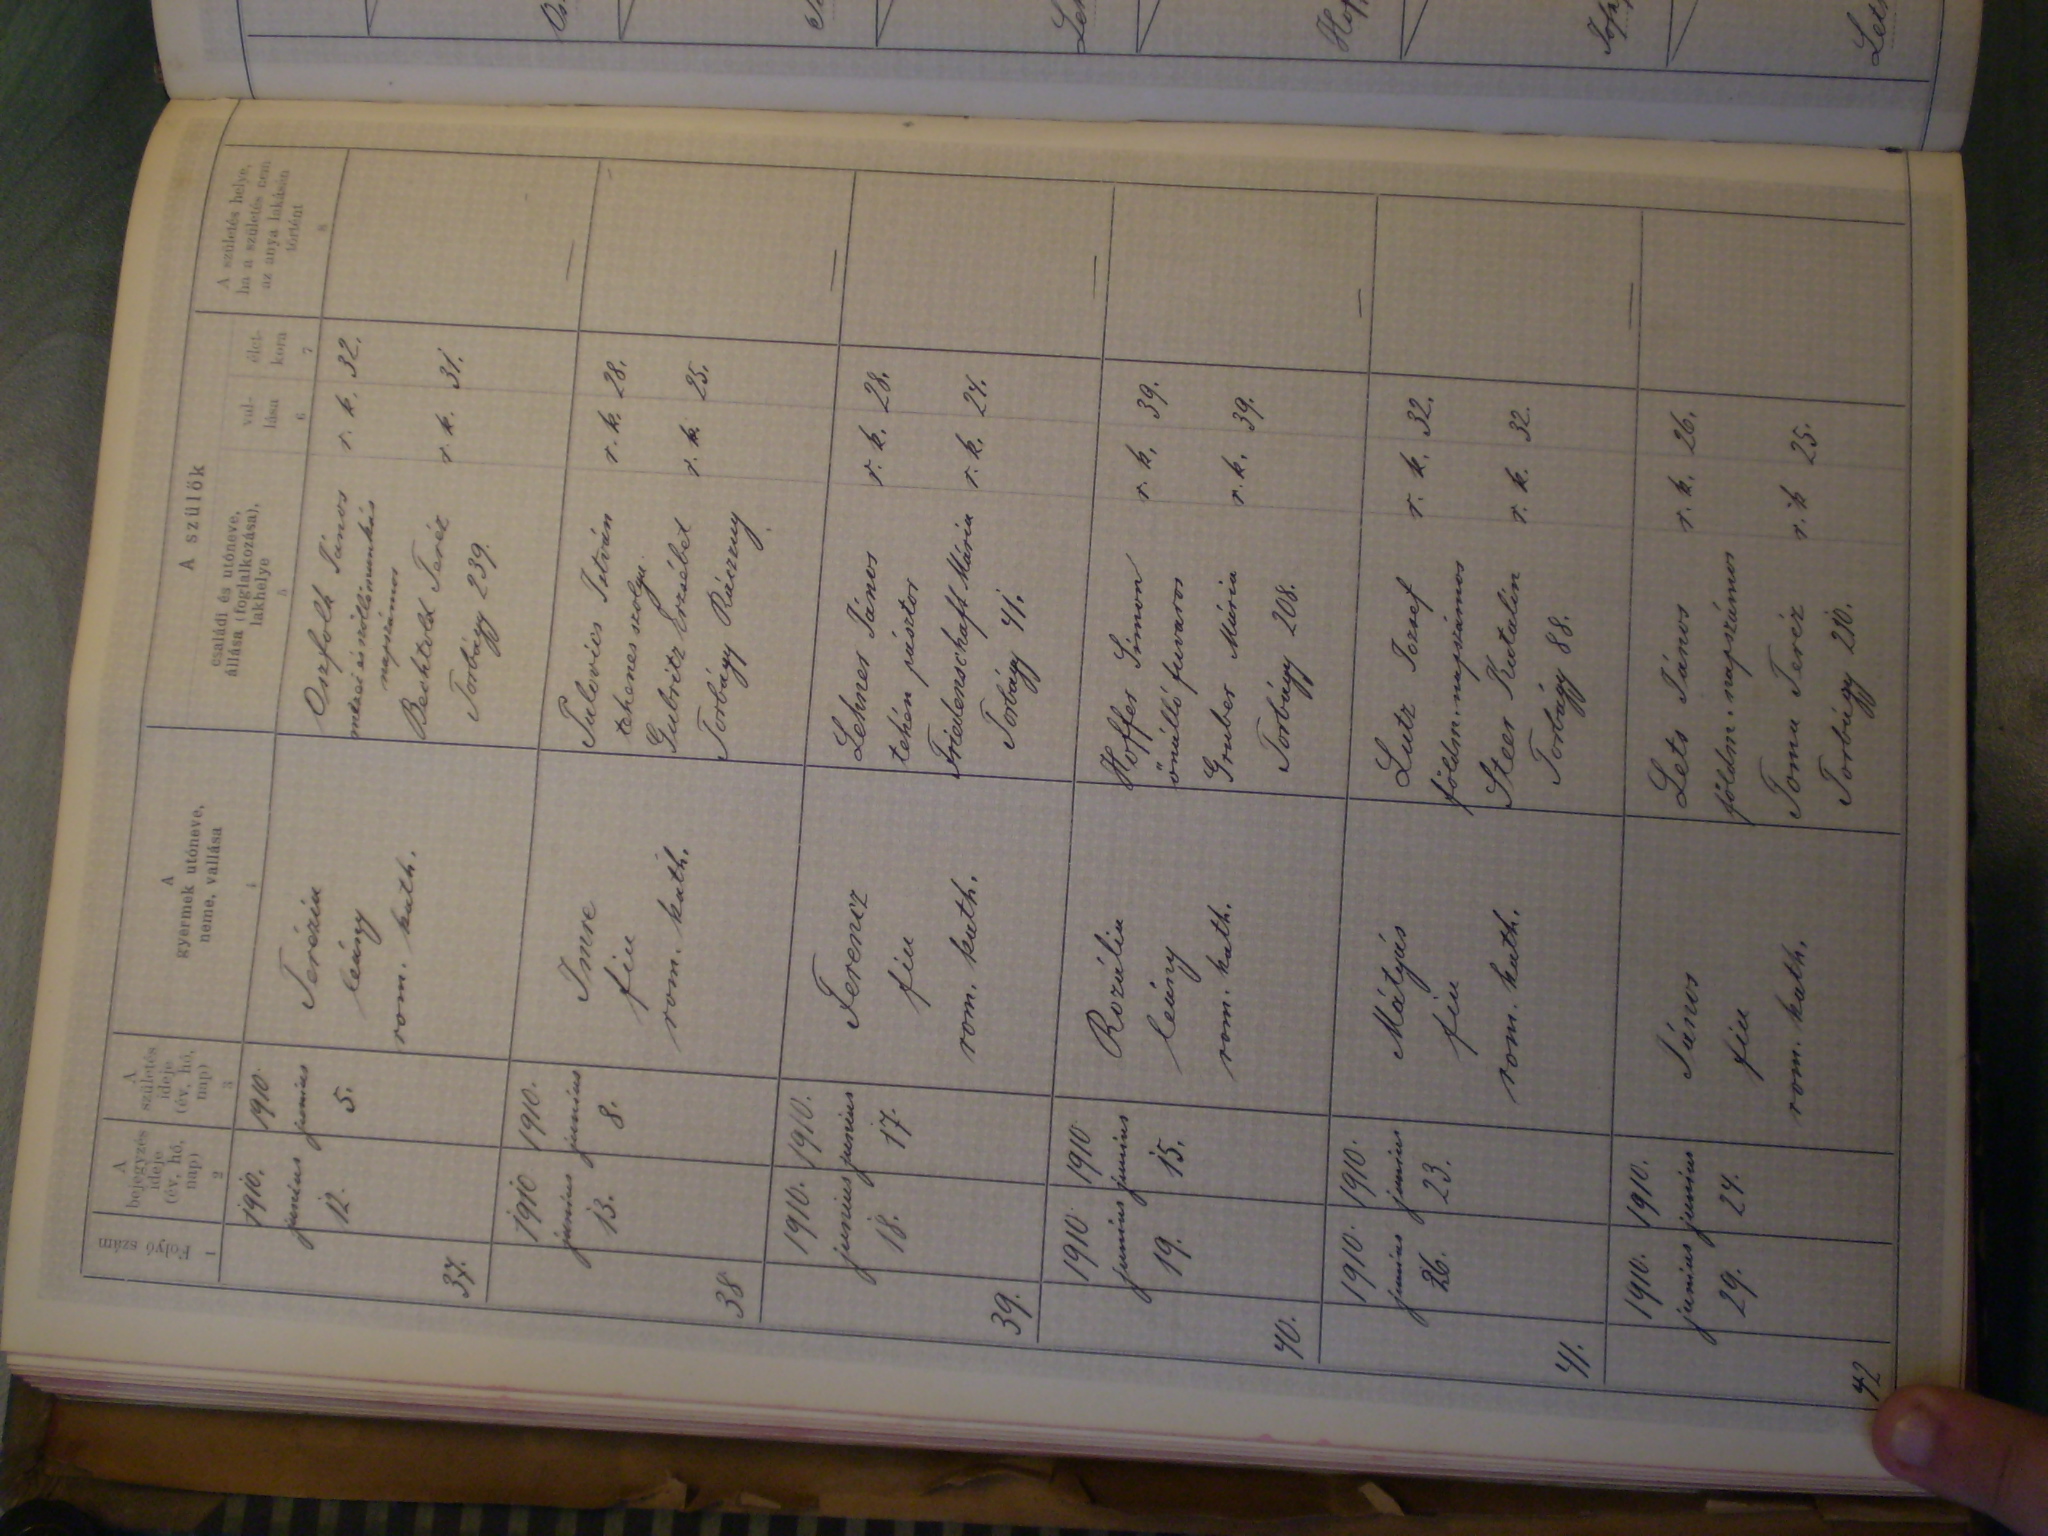 A szülők
Folyó szám
A
bejegyzés
ideje
(év, hó,
nap)
A
születés
ideje
(év, hó,
nap)
A
gyermek utóneve,
neme, vallása
családi és utóneve,
állása (foglalkozása),
lakhelye
val-
lása
élet-
kora
A születés helye,
ha a születés nem
az anya lakásán
történt
1 2 3 4 5 6 7 8
37.
1910.
junius
12.
1910.
junius
5.
Terézia
leány
rom. kath.
Oszfolk János r. k. 32.
mezei és szőllőmunkás
napszámos
Bechtold Teréz r. k. 31.
Torbágy 239.
38
1910
junius
13.
1910.
junius
8.
Imre
fiu
rom. kath.
Pulovics István r. k. 28.
tehenes szolga
Gubritz Erzsébet r. k. 25.
Torbágy Ráczzug
—
39.
1910.
junius
18.
1910.
junius
17.
Ferencz
fiu
rom. kath.
Lehner János r. k. 28.
tehén pásztor
Friedenschaft Mária r. k. 24.
Torbágy 41.
—
40.
1910
junius
19.
1910
junius
15.
Rozália
leány
rom. kath.
Hoffer Simon r. k. 39.
önálló fuvaros
Gruber Mária r. k. 39.
Torbágy 208.
—
41.
1910.
junius
26.
1910.
junius
23.
Mátyás
fiu
rom. kath.
Lutz József r. k. 32.
földm. napszámos
Steer Katalin r. k. 32.
Torbágy 88.
—
42
1910.
junius
29.
1910.
junius
24.
János
fiu
rom. kath.
Lets János r. k. 26.
földm. napszámos
Toma Teréz r. k 25.
Torbágy 210.
—